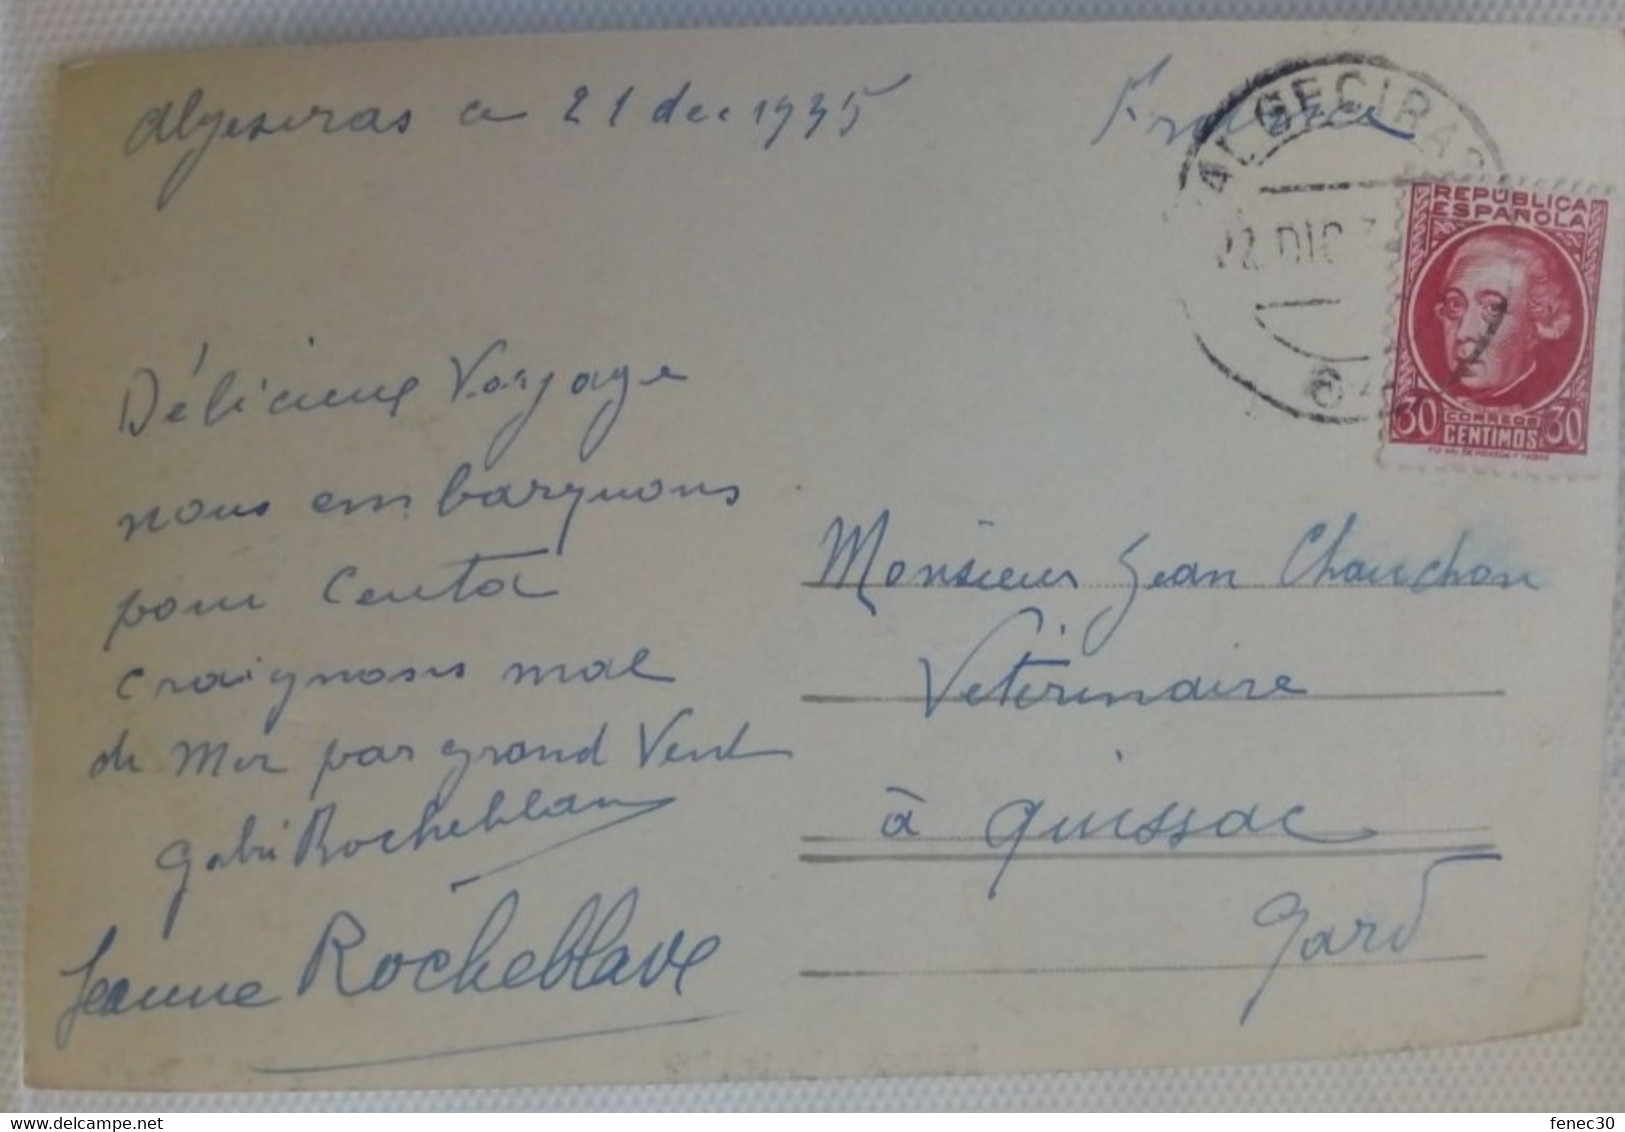 Algesiras ce 21 dec 1935
France
ALGECIRAS
22 DIC 3
REPÚBLICA
ESPAÑOLA
30 CORREOS 30
CENTIMOS
Délicieux Voyage
nous embarquons
pour Ceuta
craignons mal
de Mer par grand Vent
Gabi Rocheblave
Jeanne Rocheblave
Monsieur Jean Chauchon
Vétérinaire
à Quissac
Gard
fenec30